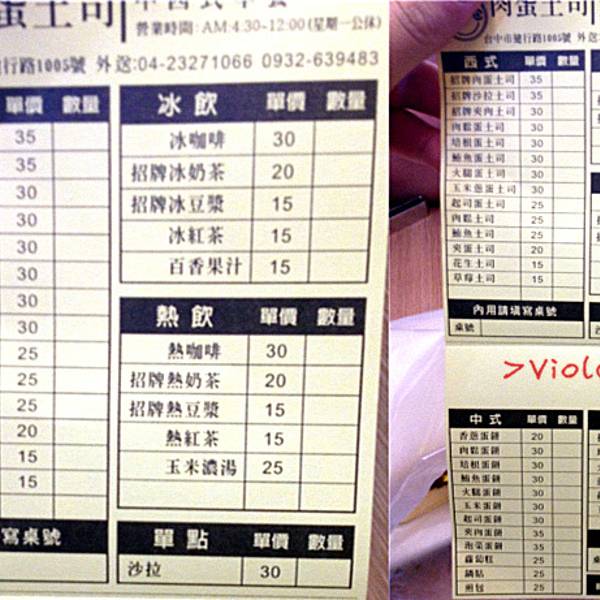 蛋土司
營業時間:AM:4:30-12:00(星期一公休)
行路1005號 外送:04-23271066 0932-639483
單價 數量
35
35
30
30
30
30
30
30
25
25
25
20
15
15
寫桌號
冰飲 單價 數量
冰咖啡 30
招牌冰奶茶 20
招牌冰豆漿 15
冰紅茶 15
百香果汁 15
熱飲 單價 數量
熱咖啡 30
招牌熱奶茶 20
招牌熱豆漿 15
熱紅茶 15
玉米濃湯 25
單點 單價 數量
沙拉 30
肉蛋土司
台中市健行路1005號 外送
西式 單價 數量
招牌肉蛋土司 35
招牌沙拉土司 35
招牌夾肉土司 30
肉鬆蛋土司 30
培根蛋土司 30
鮪魚蛋土司 30
火腿蛋土司 30
玉米蔥蛋土司 30
起司蛋土司 25
肉鬆土司 25
鮪魚土司 25
夾蛋土司 20
花生土司 15
草莓土司 15
內用請填寫桌號
桌號
>Viol
中式 單價 數量
香蔥蛋餅 20
肉鬆蛋餅 30
培根蛋餅 30
鮪魚蛋餅 30
火腿蛋餅 30
玉米蛋餅 30
起司蛋餅 30
夾肉蛋餅 35
泡菜蛋餅 35
蘿蔔糕 25
鍋貼 25
煎包 25